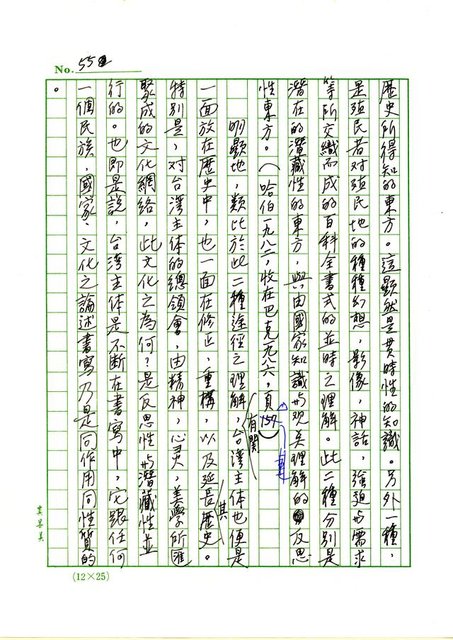 No. 552
歷史所得知的東方。這顯然是貫時性的知識。另外一種,
是殖民者對殖民地的種種幻想,影像,神話,強迫與需求
等所交織而成的百科全書式的並時之理解。此二種分別是
潛在的潛藏性的東方,與由國家知識與觀察理解的反思
性東方。(哈伯一九八二,收在巴克一九八六,頁157)
明顯地,類比於此二種途徑之理解,有關台灣主體也便是
一面放在歷史中,也一面在修正,重構,以及延長其歷史。
特別是,對台灣主體的總領會,由精神,心灵,美學所匯
聚成的文化網絡,此文化之為何?是反思性與潛藏性並
行的。也即是說,台灣主體是不斷在書寫中,它跟任何
一個民族,國家,文化之論述書寫乃是同作用同性質的
。
(12×25)